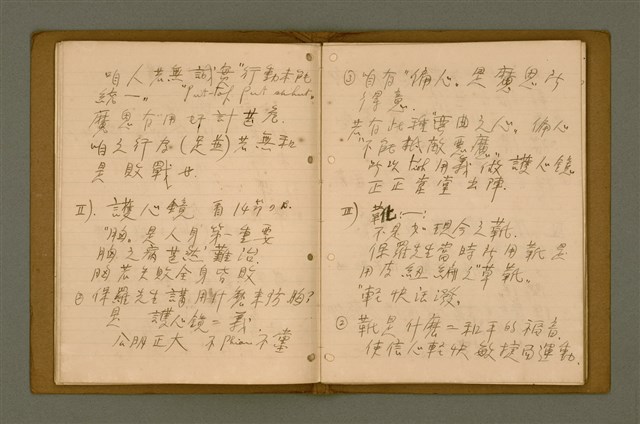 咱人若無誠實"行動未能
統一"
魔鬼有用奸計
咱之行為(足跡)若無和
是敗戰
II). 護心鏡 看14節
"胸。是人身"第一重要
胸之病甚然"難治。
胸若失敗全身皆敗
保羅先生講用什麼來防胸?
是 護心鏡=義.
公明正大 不 不黨
③ 咱有"偏心。是魔鬼所
得意.
若有此種歪曲之心。偏心
"不能抵敵惡魔"
所以 用義做護心鏡
正正堂堂出陣.
III) 靴:—:
不是如現今之靴.
保羅先生當時所用靴是
用皮紐編之"草靴。
"輕快活潑。
② 靴是什麼=和平的福音.
使信心輕快敏捷而運動.